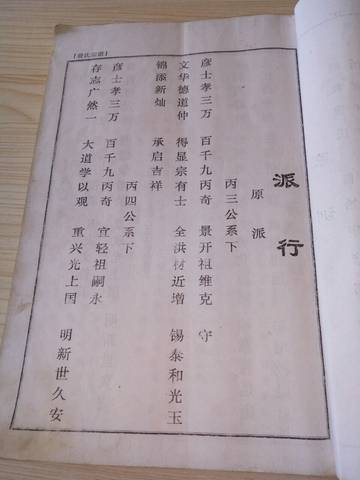 派行
原派
丙三公系下
彦士孝三万 百千九丙奇 景开祖维克 守
文华德道仲 得显宗有士 全洪材近增 锡泰和光玉
锦添新灿 承启吉祥
丙四公系下
彦士孝三万 百千九丙奇 宜轻祖嗣永
存志广然一 大道学以观 重兴光上国 明新世久安